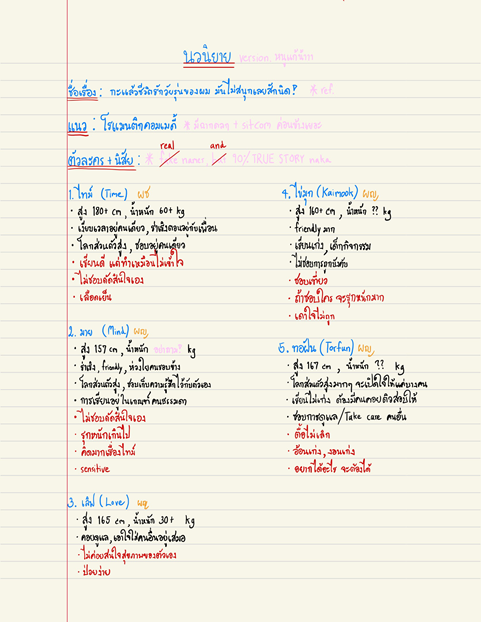 นวนิยาย version หนูแก้ว่าา
ชื่อเรื่อง : กะแล้วชีวิตรักวัยรุ่นของผม มันไม่สนุกเลยสักนิด? * ref.
แนว : โรแมนติกคอมเมดี้ * มีดราม่า + sitcom ค่อนข้างเยอะ
ตัวละคร + นิสัย : * real name, and 70% TRUE STORY naka
1. ไทม์ (Time) ผช
• สูง 180+ cm, น้ำหนัก 60+ kg
• เงียบเวลาอยู่คนเดียว, ร่าเริงตอนอยู่กับเพื่อน
• โลกส่วนตัวสูง, ชอบอยู่คนเดียว
• เรียนดี แต่ทำเหมือนไม่เข้าใจ
• ไม่ชอบตัดสินใจเอง
• เลือดเย็น
2. มาย (Mink) ผญ
• สูง 157 cm, น้ำหนัก kg
• ร่าเริง, friendly, ห่วงใยคนรอบข้าง
• โลกส่วนตัวสูง, ชอบเก็บความรู้สึกไว้กับตัวเอง
• การเรียนอยู่ในเกณฑ์ คนธรรมดา
• ไม่ชอบตัดสินใจเอง
• รุกหนักเกินไป
• คิดมากเรื่องไทม์
• sensitive
3. เลิฟ (Love) ผญ
• สูง 165 cm, น้ำหนัก 30+ kg
• คอยดูแล, เอาใจใส่คนอื่นอยู่เสมอ
• ไม่ค่อยสนใจสุขภาพของตัวเอง
• ป่วยง่าย
4. ไข่มุก (Kaimook) ผญ
• สูง 160+ cm, น้ำหนัก ?? kg
• friendly มาก
• เรียนเก่ง, เด็กกิจกรรม
• ไม่ชอบการถูกบังคับ
• ชอบเที่ยว
• ถ้าชอบใคร จะรุกหนักมาก
• เดาใจไม่ถูก
5. ทอฝัน (Torfun) ผญ
• สูง 167 cm, น้ำหนัก ?? kg
• โลกส่วนตัวสูงมากๆ จะเปิดใจให้แค่บางคน
• เรียนไม่เก่ง ต้องมีคนคอยติวสอบให้
• ชอบการดูแล/Take care คนอื่น
• ดื้อไม่เลิก
• อ้อนเก่ง, งอนเก่ง
• อยากได้อะไร จะต้องได้